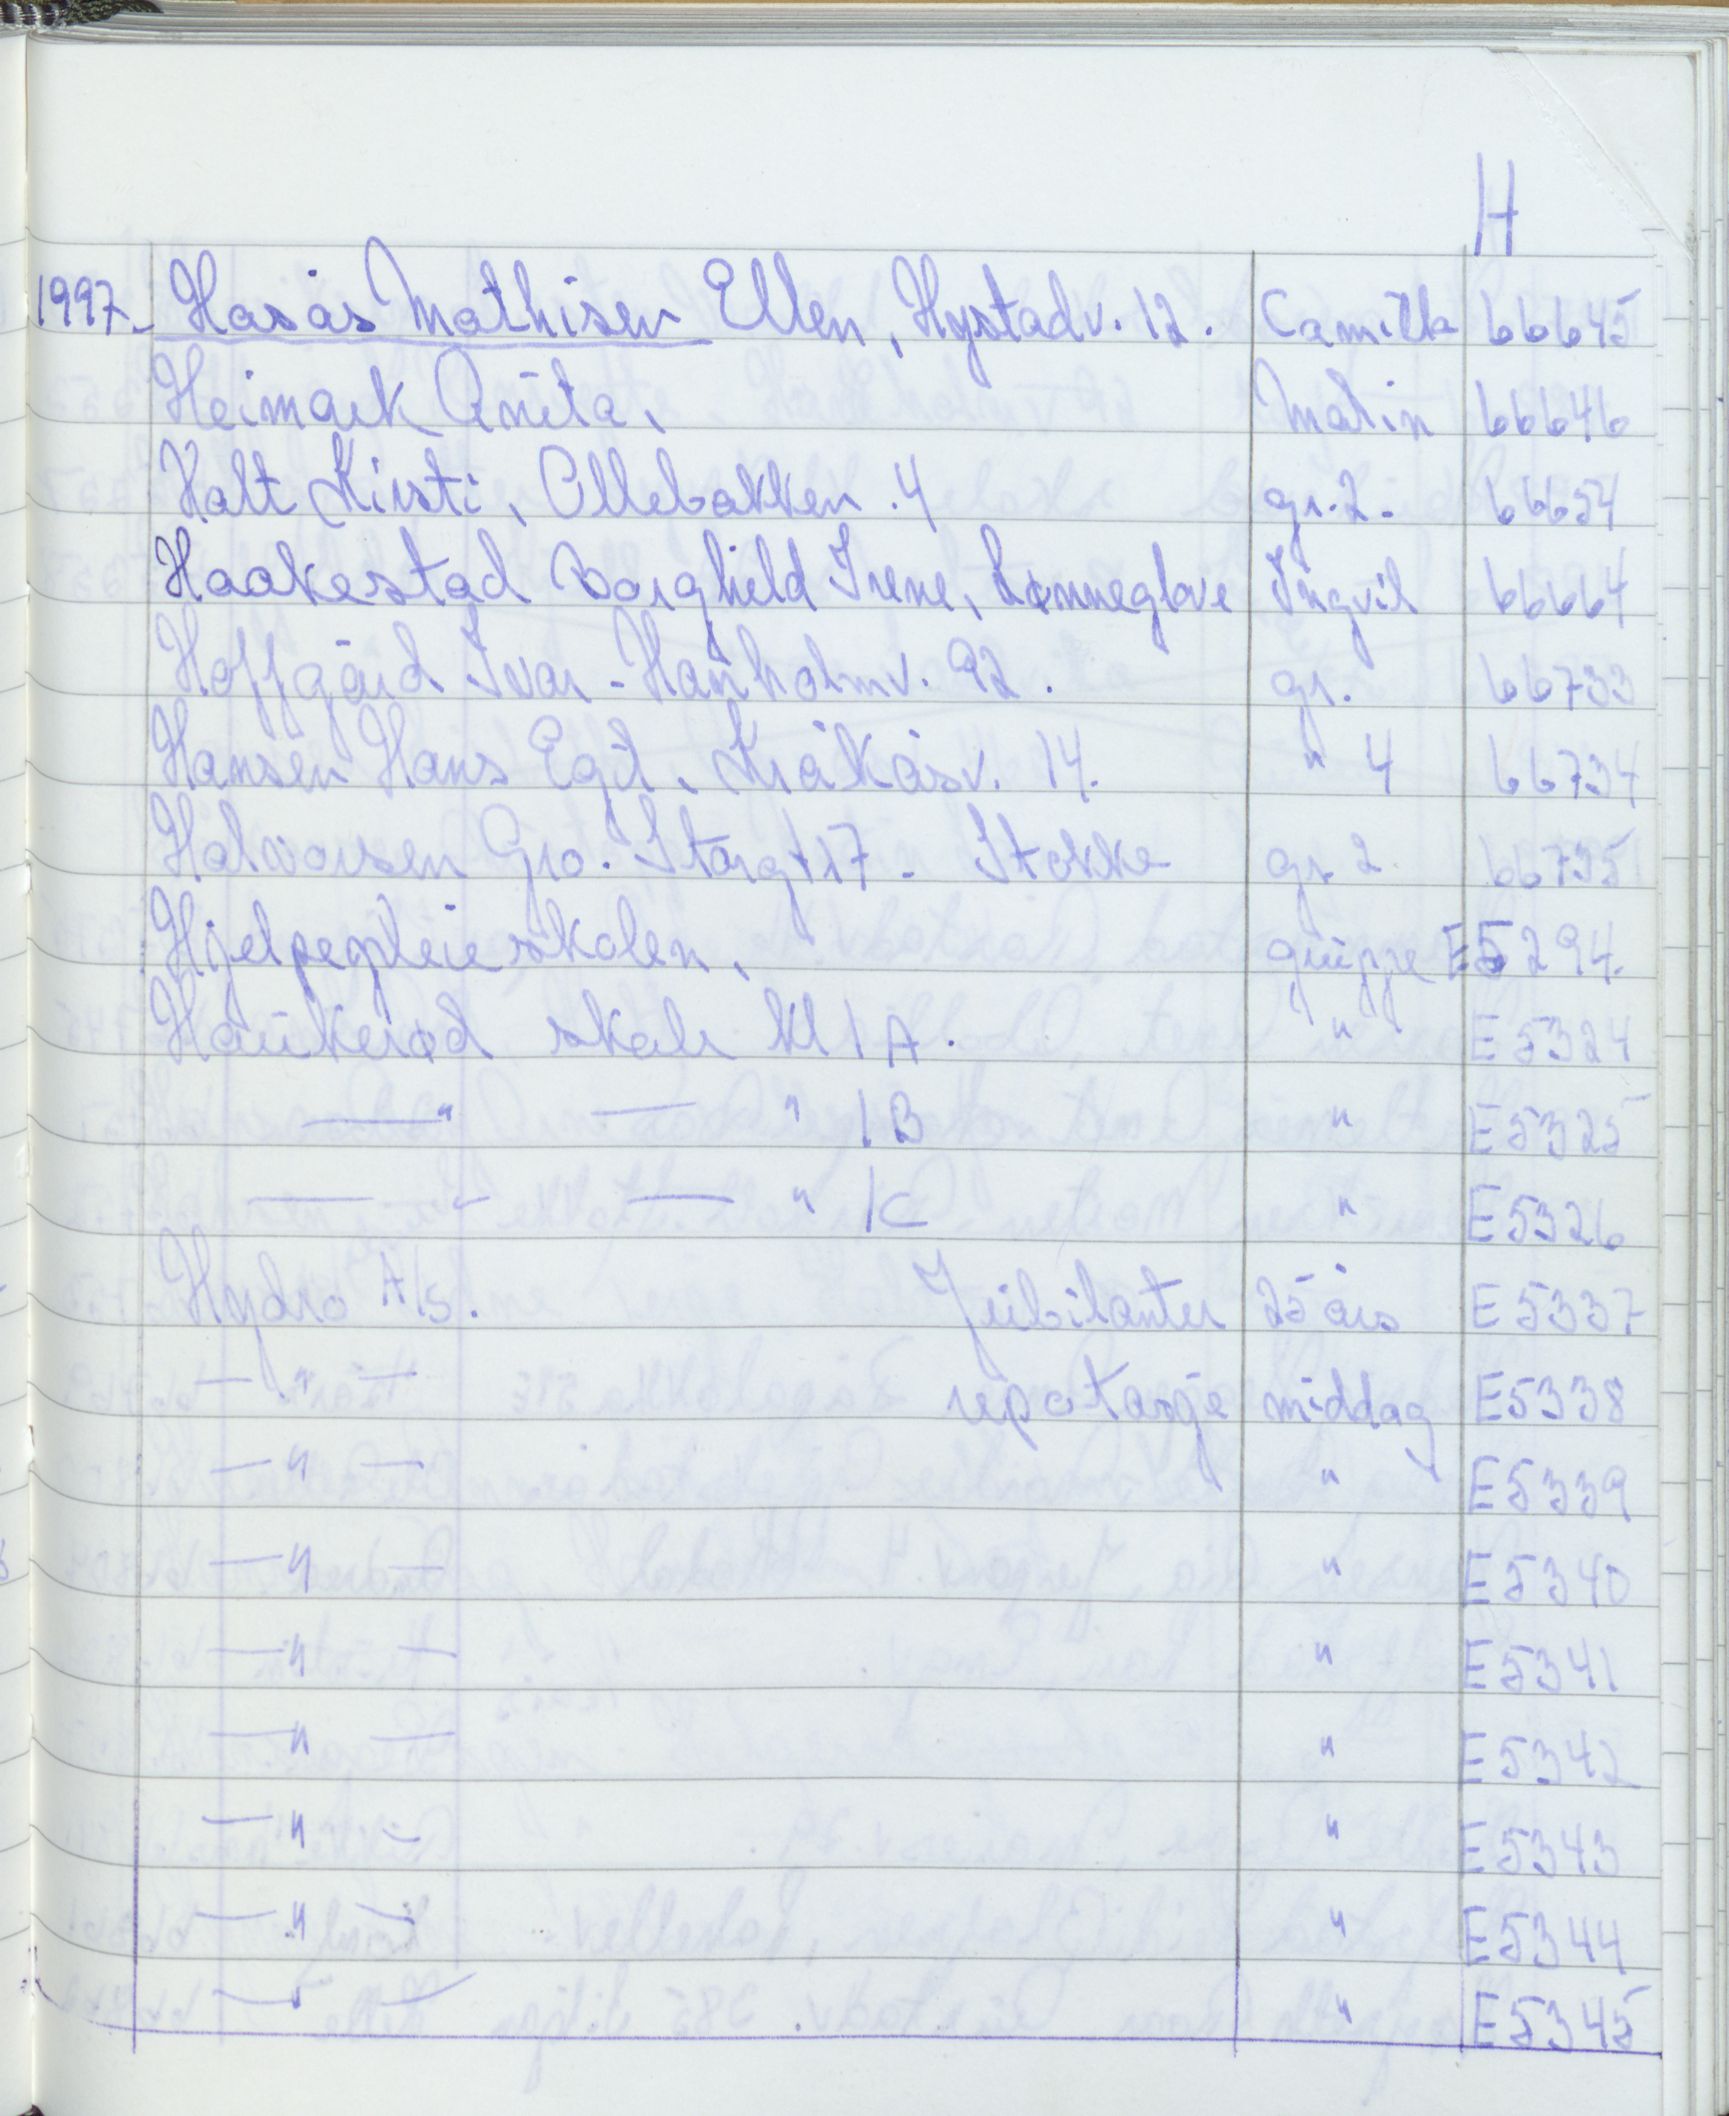 H
1997. Hasås Mathisen Ellen, Hystadv. 12. Camilla 66645
Heimark Anita, Malin 66646
Holt Kirsti, Ollebakken. 4 gr. 2. 66654
Haakestad Borghild Irene, Lønneglove Ingvil 66664
Hoffgård Ivar - Hauholmv. 92. gr. 66733
Hansen Hans Egil, Kråkåsv. 14. " 4 66734
Halvorsen Gro. Storgt 17. Stokke gr. 2 66735
Hjelpepleieskolen, gruppe E5294.
Haukerød skole kl 1 A. " E5324
—"— — " 1B " E5325
—"— — " 1C " E5326
Hydro A/s. Jubilanter 25 års E5337
—"— repotasje middag E5338
—"— " E5339
—"— " E5340
—"— " E5341
—"— " E5342
—"— " E5343
—"— " E5344
—"— " E5345